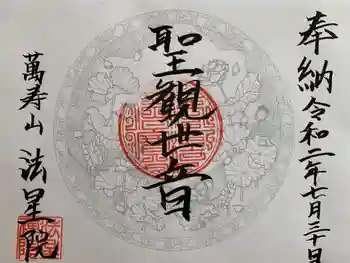 奉納 令和二年七月三十日
聖觀世音
萬寿山 法星院